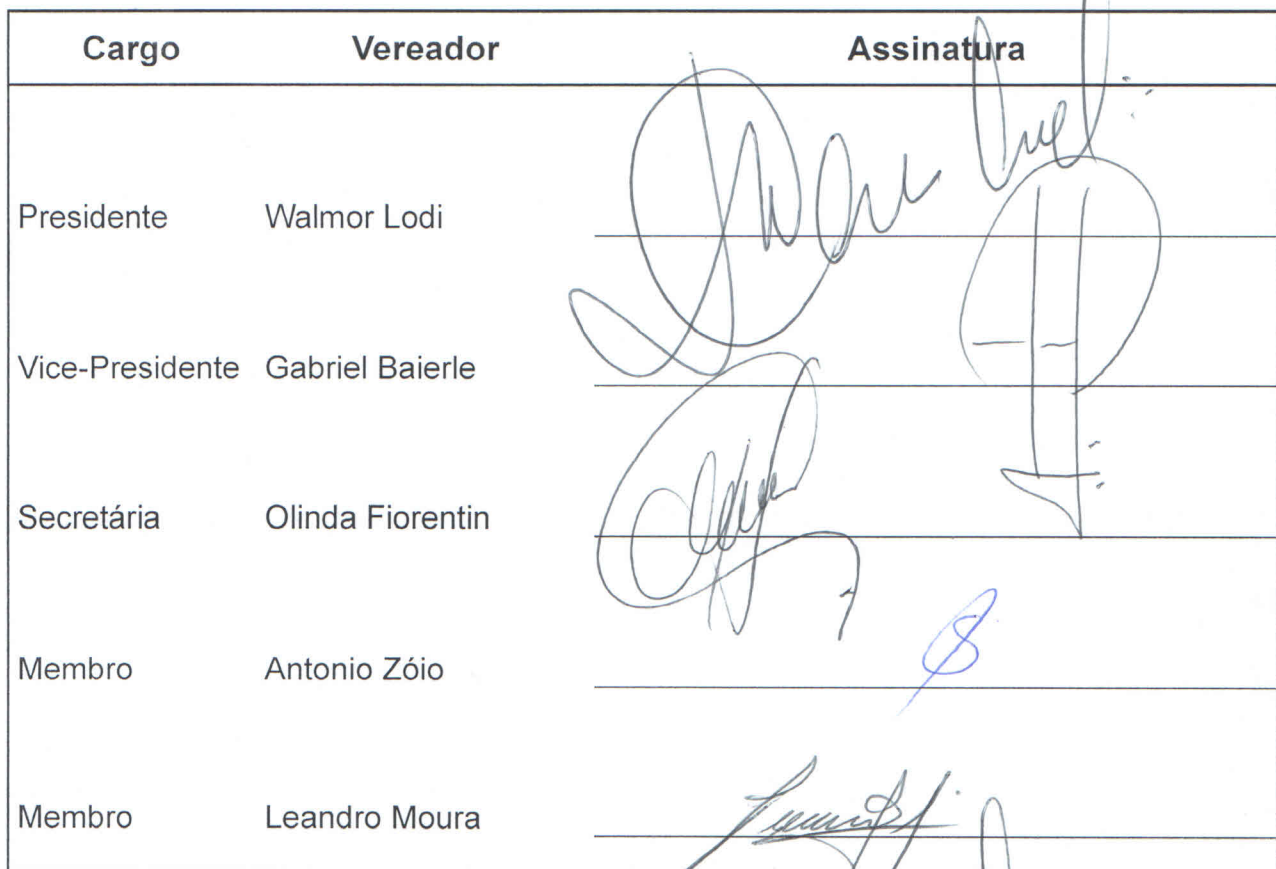 Cargo Vereador Assinatura
Presidente Walmor Lodi
Vice-Presidente Gabriel Baierle
Secretária Olinda Fiorentin
Membro Antonio Zóio
Membro Leandro Moura